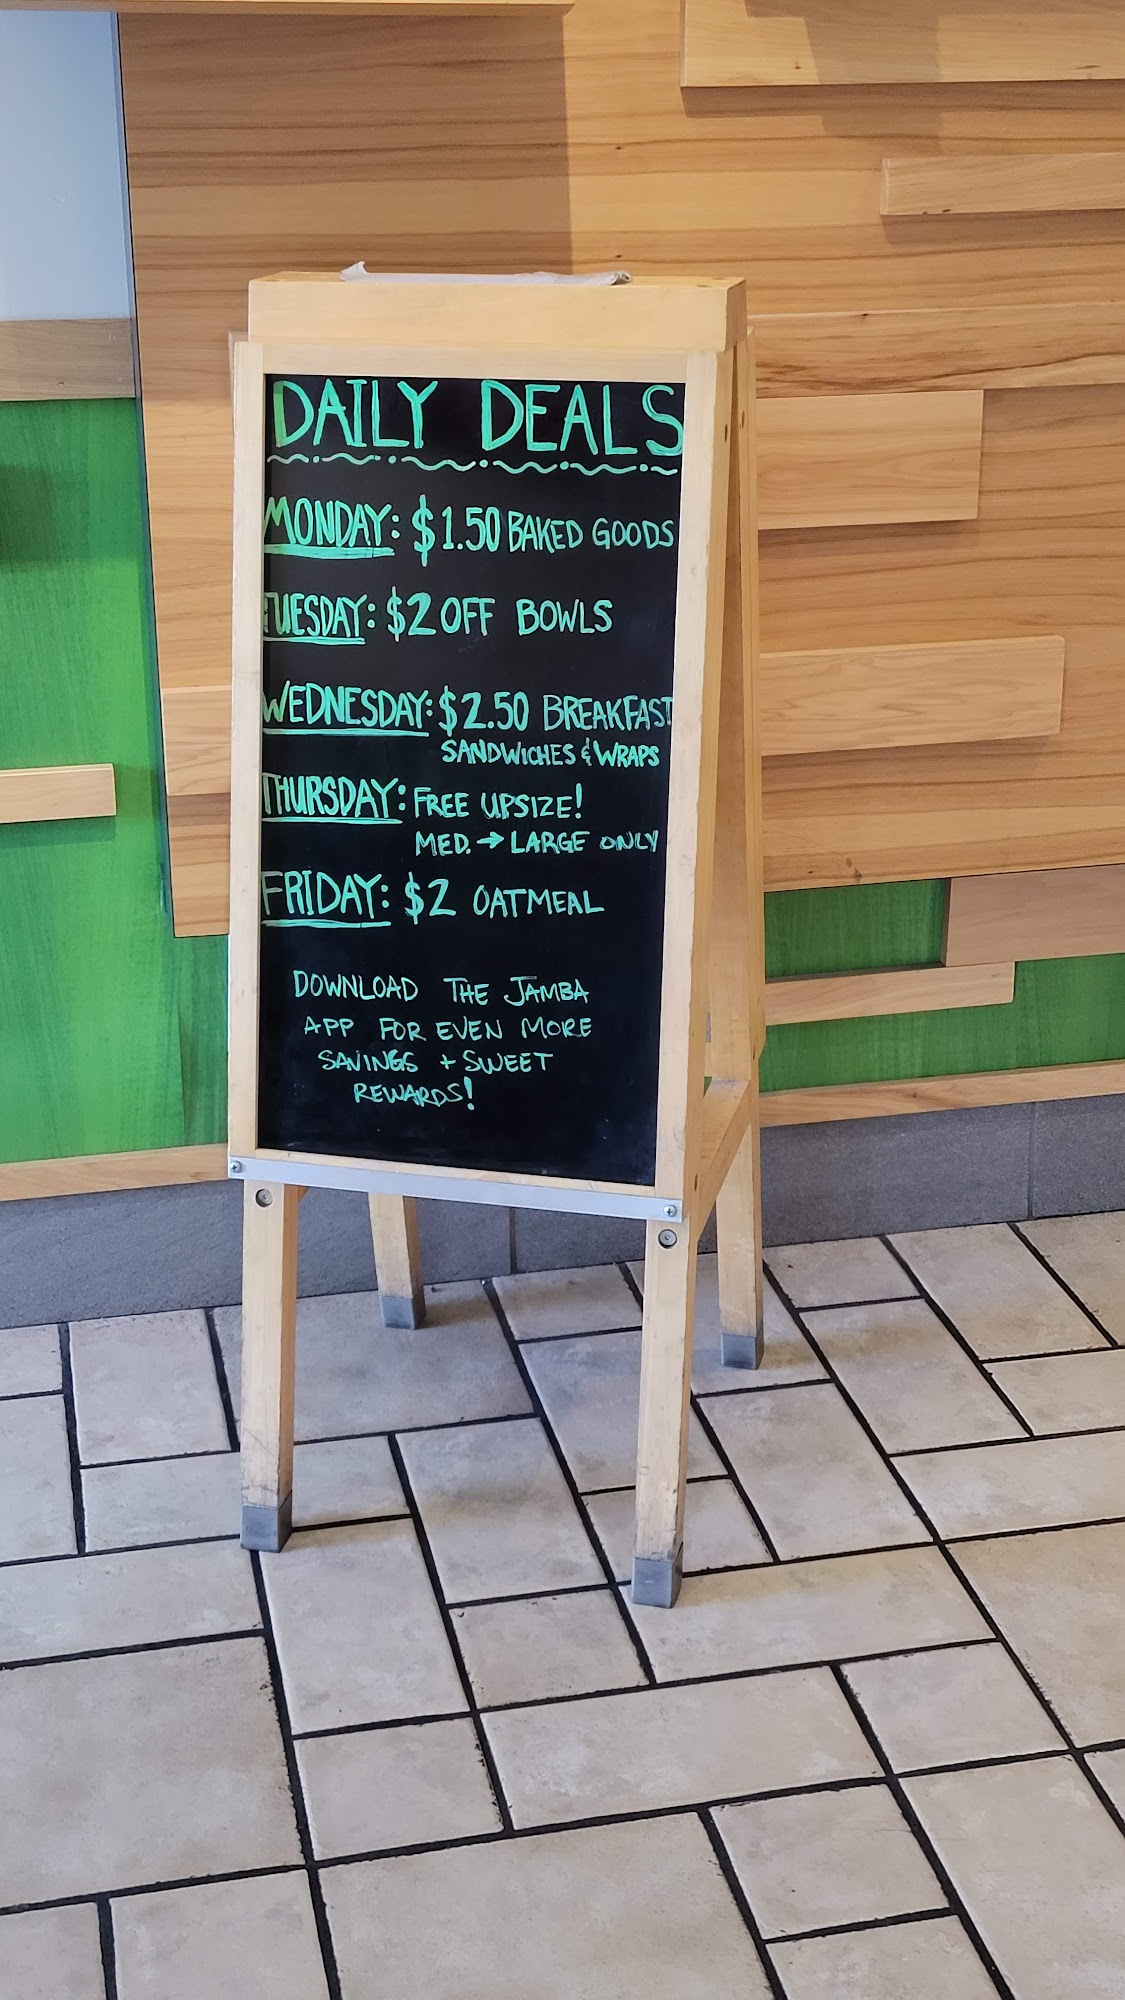 DAILY DEALS
MONDAY: $1.50 BAKED GOODS
TUESDAY: $2 OFF BOWLS
WEDNESDAY: $2.50 BREAKFAST
SANDWICHES & WRAPS
THURSDAY: FREE UPSIZE!
MED. → LARGE ONLY
FRIDAY: $2 OATMEAL
DOWNLOAD THE JAMBA
APP FOR EVEN MORE
SAVINGS + SWEET
REWARDS!